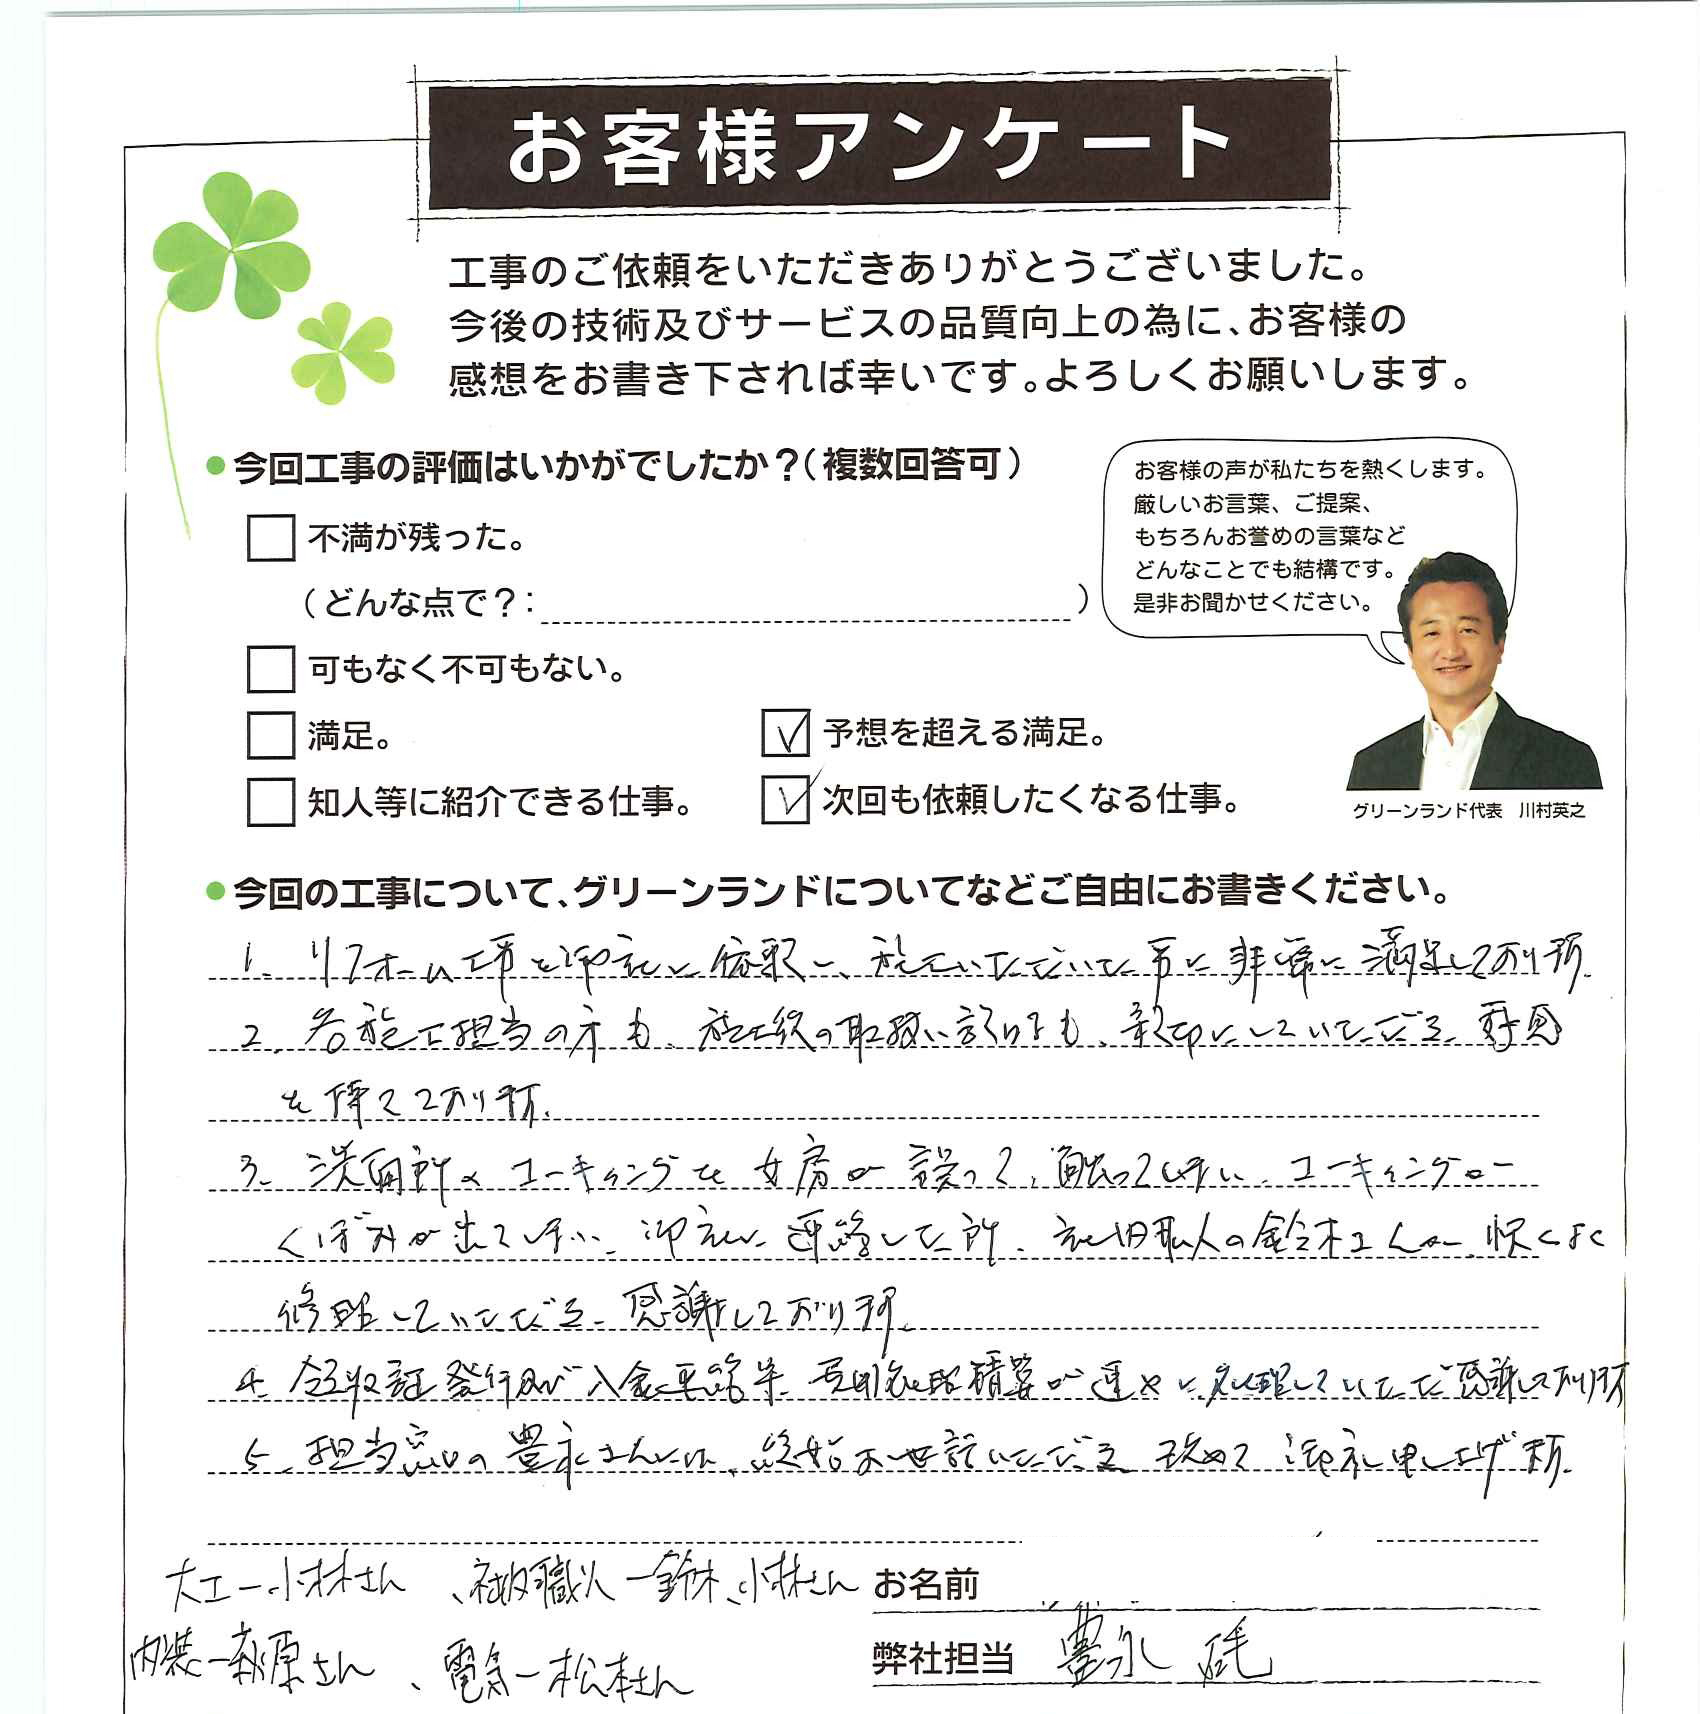 お客様アンケート
工事のご依頼をいただきありがとうございました。
今後の技術及びサービスの品質向上の為に、お客様の
感想をお書き下されば幸いです。よろしくお願いします。
●今回工事の評価はいかがでしたか？(複数回答可)
不満が残った。
(どんな点で？: )
可もなく不可もない。
満足。
予想を超える満足。
知人等に紹介できる仕事。
次回も依頼したくなる仕事。
お客様の声が私たちを熱くします。
厳しいお言葉、ご提案、
もちろんお誉めの言葉など
どんなことでも結構です。
是非お聞かせください。
グリーンランド代表 川村英之
●今回の工事について、グリーンランドについてなどご自由にお書きください。
1. リフォーム工事を御社に依頼し、施工いただいた事に非常に満足しております.
2. 各施工担当の方も、施工後の取扱い説明も、親切にしていただき、好感
を持てております.
3. 洗面所のコーキングを女房が誤って、触ってしまい、コーキングの
くぼみが出てしまい、御社に連絡した所、社内職人の鈴木さんが、快くよく
修理していただき、感謝しております.
4. 領収証発行及び入金連絡等、処理していただき感謝しております
5. 担当窓口の豊永さんには、終始お世話いただき、改めて御礼申し上げます.
大工ー小林さん 、社内職人ー鈴木、小林さん
内装ー萩原さん 、電気ー松本さん
お名前
弊社担当 豊永